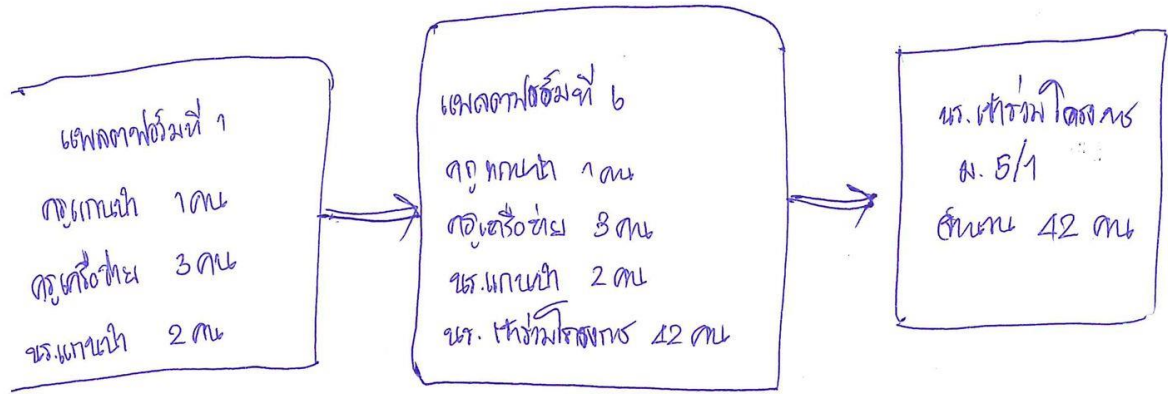 แพลตฟอร์มที่ 1
ครูแกนนำ 1 คน
ครูเครือข่าย 3 คน
นร.แกนนำ 2 คน
แพลตฟอร์มที่ 6
ครูแกนนำ 1 คน
ครูเครือข่าย 3 คน
นร.แกนนำ 2 คน
นร. เข้าร่วมโครงการ 42 คน
นร. เข้าร่วมโครงการ
ม. 5/1
จำนวน 42 คน